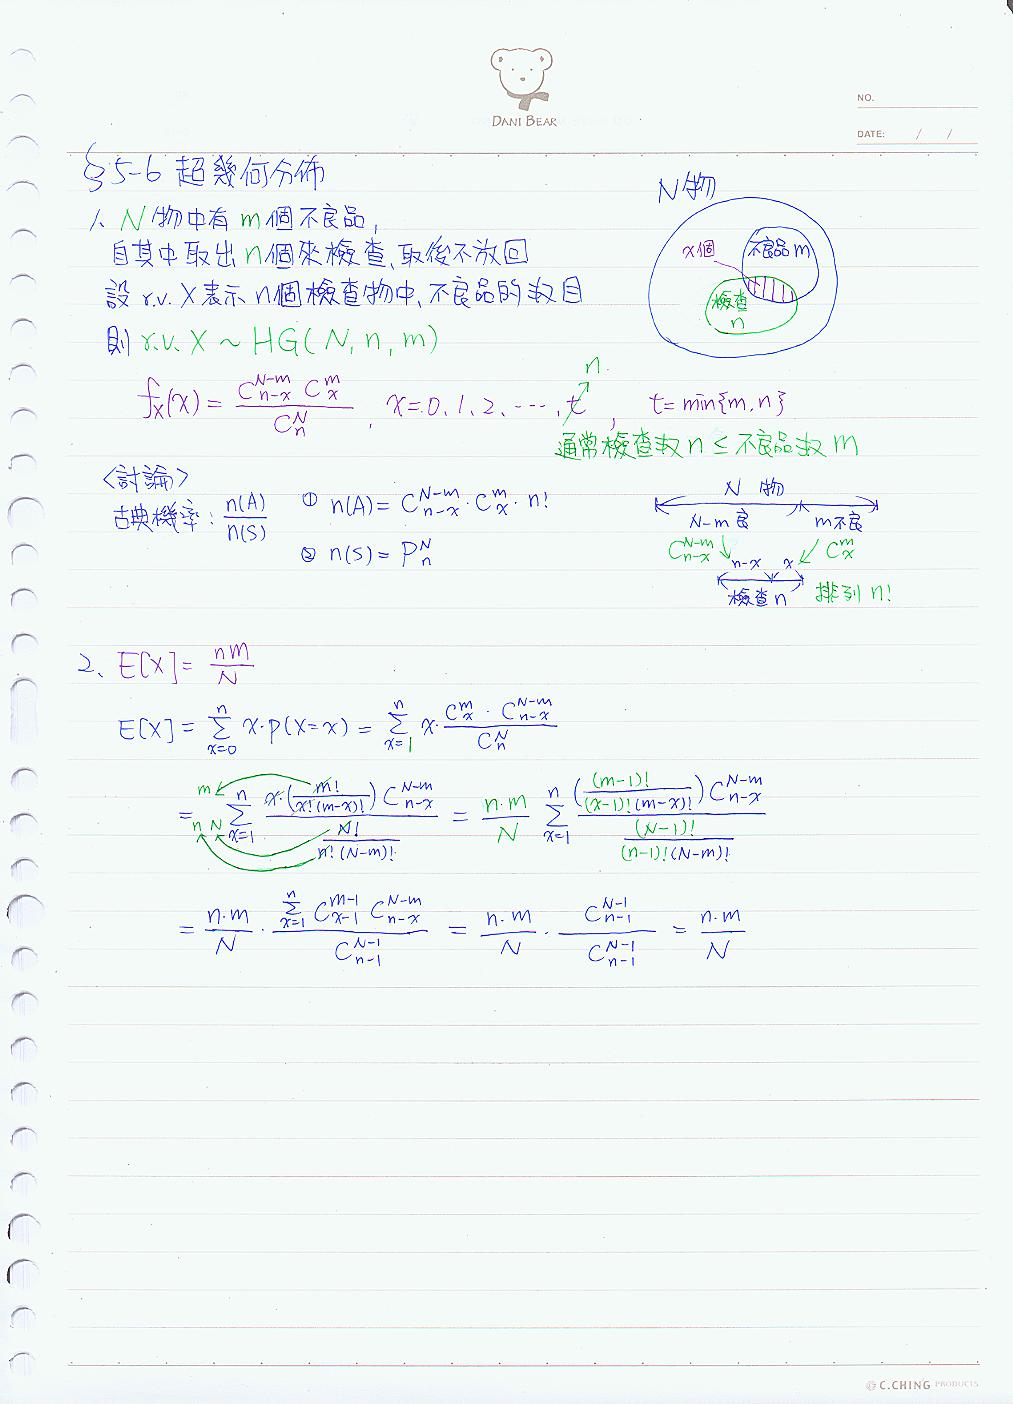 DANI BEAR
NO.
DATE: / /
§5-6 超幾何分佈
1、N物中有m個不良品,
自其中取出n個來檢查、取後不放回
設 r.v. X表示n個檢查物中、不良品的数目
則 r.v. X ~ HG(N, n, m)
N物
x個
不良品m
檢查
n
f_X(x) = C^{N-m}_{n-x} C^m_x / C^N_n , x=0、1、2、…、t , t=min{m, n}
n
通常檢查数n ≤ 不良品数m
<討論>
古典機率: n(A)/n(S)
① n(A)= C^{N-m}_{n-x}·C^m_x·n!
② n(S)= P^N_n
N 物
N-m 良 m不良
C^{N-m}_{n-x} n-x x C^m_x
檢查n 排列 n!
2、E[X]= nm/N
E[X]= Σ_{x=0}^{n} x·P(X=x) = Σ_{x=1}^{n} x· C^m_x · C^{N-m}_{n-x} / C^N_n
= m/(n N) Σ_{x=1}^{n} x·(m!/(x!(m-x)!)) C^{N-m}_{n-x} / (N!/(n!(N-m)!)) = n·m/N Σ_{x=1}^{n} ((m-1)!/((x-1)!(m-x)!)) C^{N-m}_{n-x} / ((N-1)!/((n-1)!(N-m)!))
= n·m/N · Σ_{x=1}^{n} C^{m-1}_{x-1} C^{N-m}_{n-x} / C^{N-1}_{n-1} = n·m/N · C^{N-1}_{n-1} / C^{N-1}_{n-1} = n·m/N
C.CHING PRODUCTS